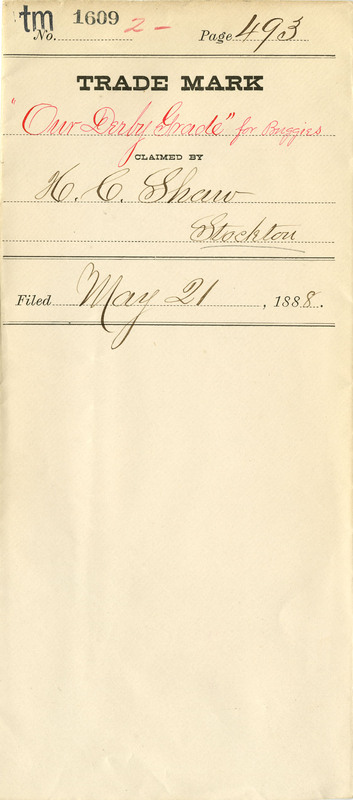 tm No. 1609 2- Page 493
TRADE MARK
"Our Derby Grade" for Buggies
CLAIMED BY
H. C. Shaw
Stockton
Filed May 21, 1888.